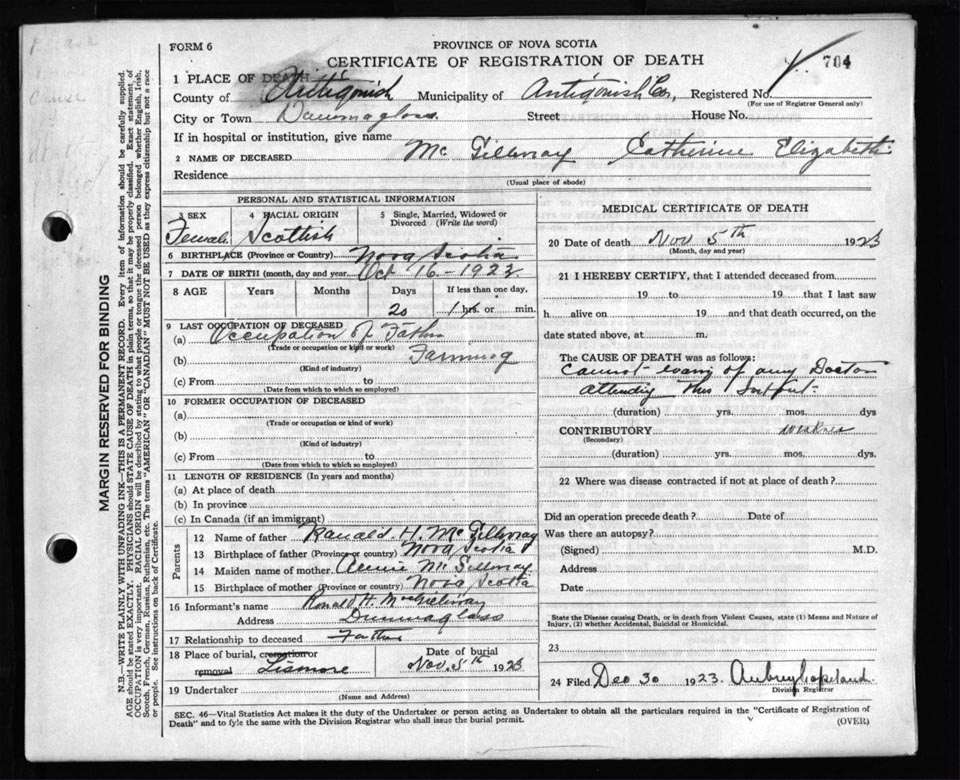 FORM 6
PROVINCE OF NOVA SCOTIA
CERTIFICATE OF REGISTRATION OF DEATH
704
1 PLACE OF DEATH
County of Antigonish Municipality of Antigonish Co, Registered No.
(For use of Registrar General only)
City or Town Street House No.
If in hospital or institution, give name
2 NAME OF DECEASED Mc Gillivray Catherine Elizabeth
Residence
(Usual place of abode)
PERSONAL AND STATISTICAL INFORMATION
3 SEX 4 RACIAL ORIGIN 5 Single, Married, Widowed or Divorced (Write the word)
Female Scottish
6 BIRTHPLACE (Province or Country) Nova Scotia
7 DATE OF BIRTH (month, day and year) Oct 16 - 1923
8 AGE Years Months Days If less than one day,
20 hrs. or min.
9 LAST OCCUPATION OF DECEASED
(a) Occupation of Father
(Trade or occupation or kind or work)
(b) Farming
(Kind of industry)
(c) From to
(Date from which to which so employed)
10 FORMER OCCUPATION OF DECEASED
(a)
(Trade or occupation or kind of work)
(b)
(Kind of industry)
(c) From to
(Date from which to which so employed)
11 LENGTH OF RESIDENCE (In years and months)
(a) At place of death
(b) In province
(c) In Canada (if an immigrant)
Parents
12 Name of father Ranald H. McGillivray
13 Birthplace of father (Province or country) Nova Scotia
14 Maiden name of mother Annie McGillivray
15 Birthplace of mother (Province or country) Nova Scotia
16 Informant's name Ronald H. McGillivray
Address Dunmaglass
17 Relationship to deceased Father
18 Place of burial, cremation or removal Lismore
Date of burial Nov. 5th 1923
19 Undertaker
(Name and Address)
MEDICAL CERTIFICATE OF DEATH
20 Date of death Nov 5th 1923
(Month, day and year)
21 I HEREBY CERTIFY, that I attended deceased from
19 to 19 that I last saw
h alive on 19 and that death occurred, on
date stated above, at m.
The CAUSE OF DEATH was as follows:
Cannot of any Doctor
attending this
(duration) yrs. mos. dys
CONTRIBUTORY weakness
(Secondary)
(duration) yrs. mos. dys.
22 Where was disease contracted if not at place of death?
Did an operation precede death? Date of
Was there an autopsy?
(Signed) M.D.
Address
Date
State the Disease causing Death, or in death from Violent Causes, state (1) Means and Nature of
Injury, (2) whether Accidental, Suicidal or Homicidal.
23
24 Filed Dec 30 1923. Aubrey Copeland.
Division Registrar
SEC. 46—Vital Statistics Act makes it the duty of the Undertaker or person acting as Undertaker to obtain all the particulars required in the "Certificate of Registration of
Death" and to fyle the same with the Division Registrar who shall issue the burial permit.
(OVER)
MARGIN RESERVED FOR BINDING
N.B.—WRITE PLAINLY WITH UNFADING INK—THIS IS A PERMANENT RECORD. Every item of information should be carefully supplied.
AGE should be stated EXACTLY. PHYSICIANS should STATE CAUSE OF DEATH in plain terms, so that it may be properly classified. Exact statement of
OCCUPATION is very important. RACIAL ORIGIN will be described by stating to what people or tongue the deceased person belonged whether English, Irish,
Scotch, French, German, Russian, Ruthenian, etc. The terms "AMERICAN" OR "CANADIAN" MUST NOT BE USED as they express citizenship but not a race
or people. See instructions on back of Certificate.
cause